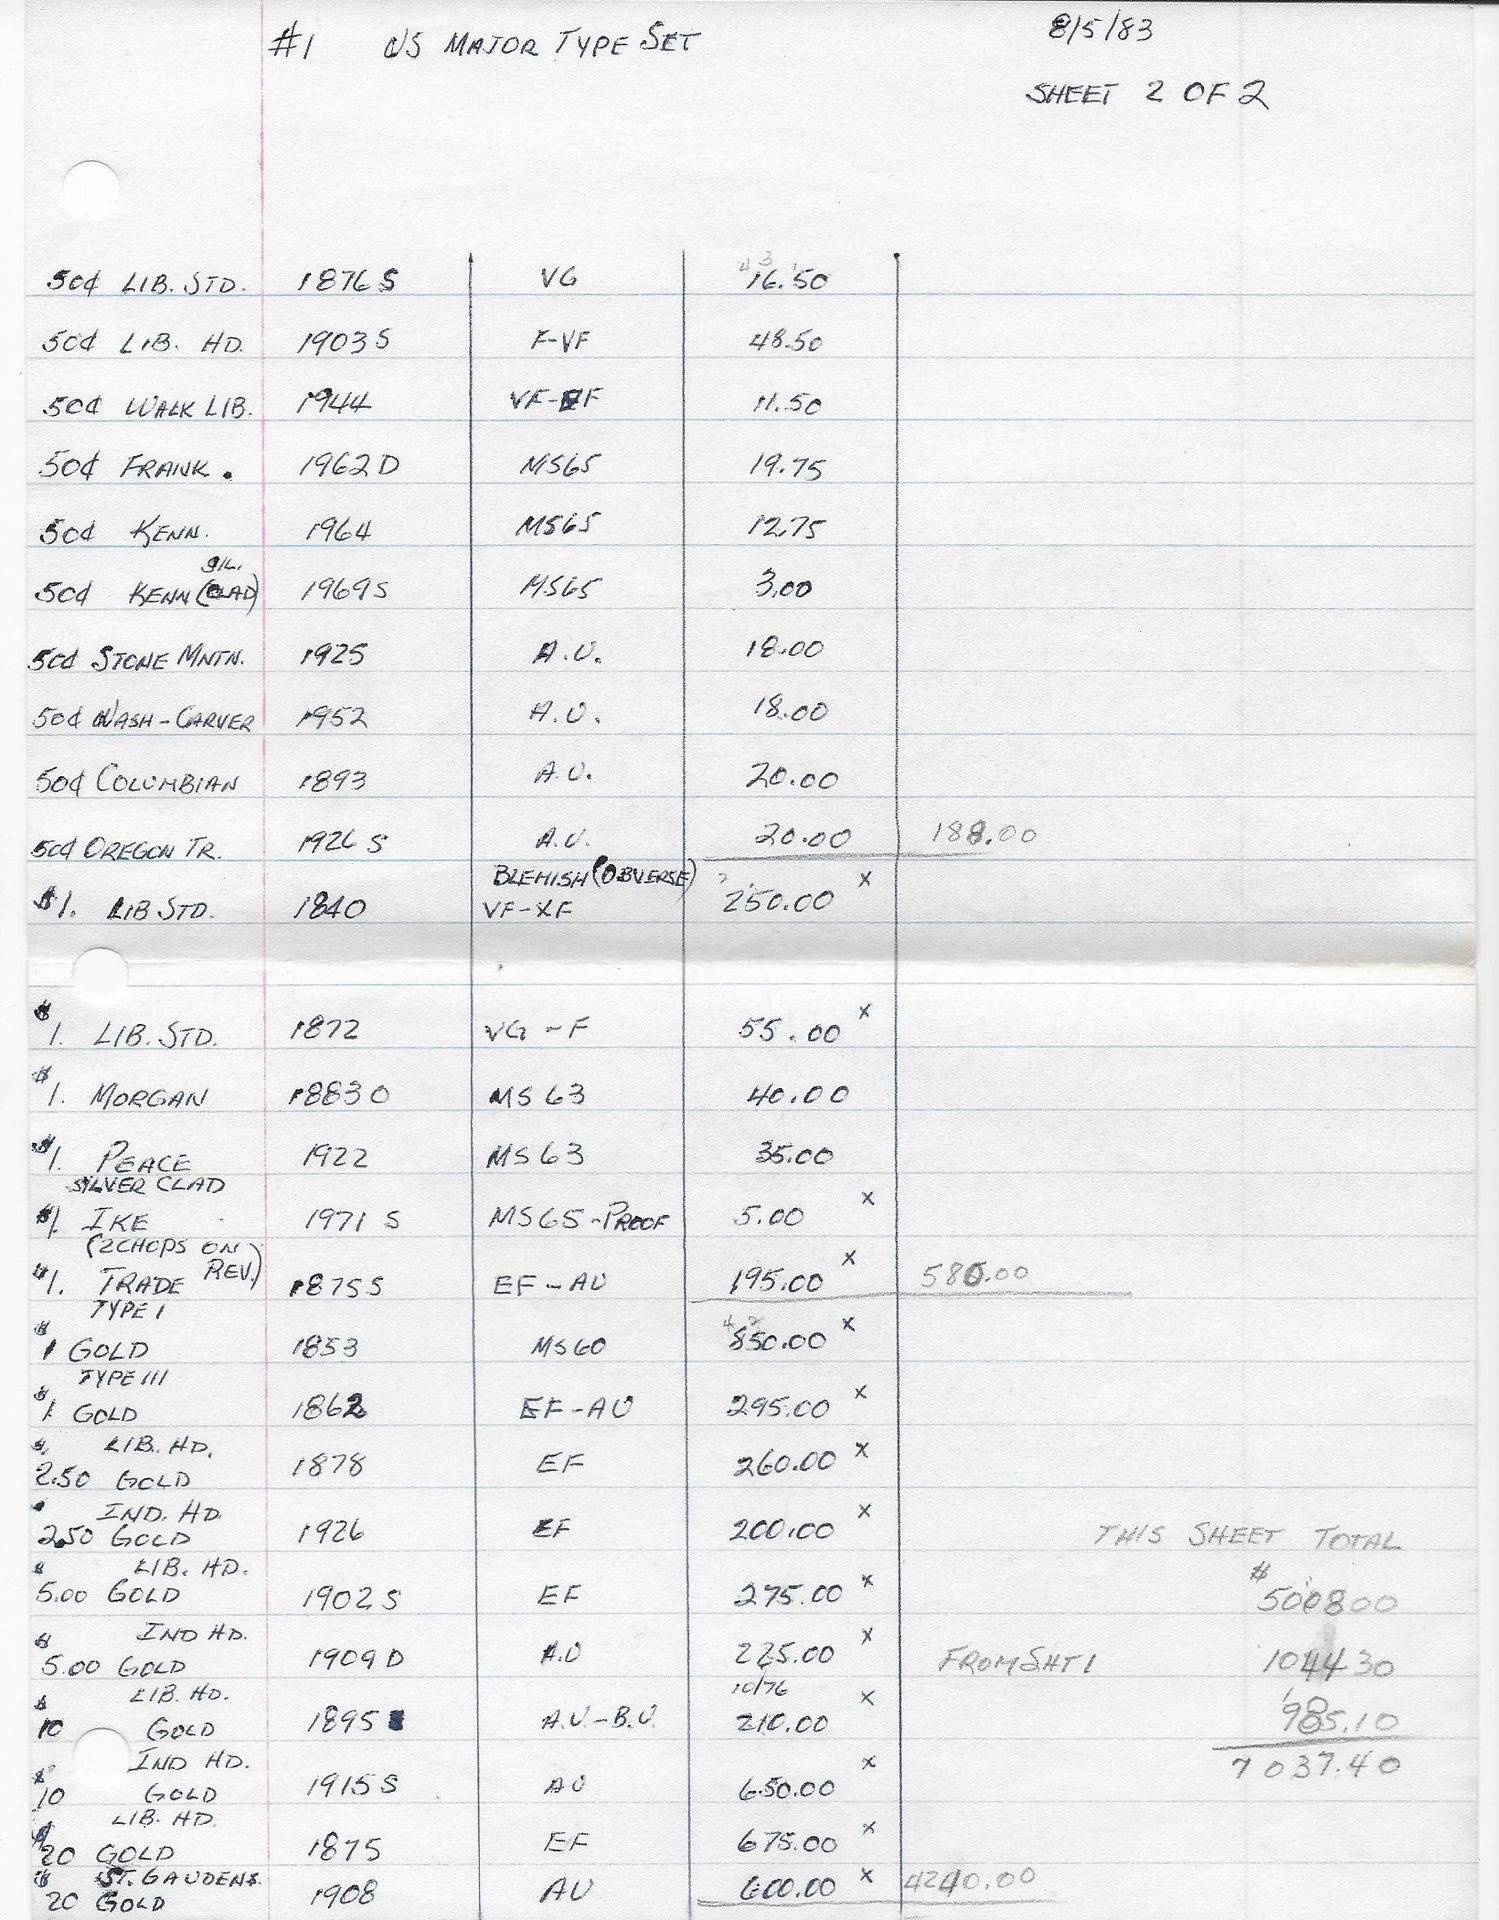 #1 US MAJOR TYPE SET 8/5/83
SHEET 2 OF 2
50¢ LIB. STD. 1876 S VG 16.50
50¢ LIB. HD. 1903 S F-VF 48.50
50¢ WALK LIB. 1944 VF-EF 11.50
50¢ FRANK. 1962 D MS65 19.75
50¢ KENN. 1964 MS65 12.75
SIL.
50¢ KENN (CLAD) 1969 S MS65 3.00
50¢ STONE MNTN. 1925 A.U. 18.00
50¢ WASH-CARVER 1952 A.U. 18.00
50¢ COLUMBIAN 1893 A.U. 20.00
50¢ OREGON TR. 1926 S A.U. 20.00 188.00
BLEMISH (OBVERSE)
$1. LIB STD. 1840 VF-XF 250.00 x
$1. LIB. STD. 1872 VG-F 55.00 x
$1. MORGAN 1883 O MS 63 40.00
$1. PEACE 1922 MS 63 35.00
SILVER CLAD
$1. IKE 1971 S MS65-PROOF 5.00 x
(2 CHOPS ON REV.)
$1. TRADE 1875 S EF-AU 195.00 x 580.00
TYPE I
$1 GOLD 1853 MS60 850.00 x
TYPE III
$1. GOLD 1862 EF-AU 295.00 x
$ LIB. HD.
2.50 GOLD 1878 EF 260.00 x
IND. HD.
2.50 GOLD 1926 EF 200.00 x
THIS SHEET TOTAL
$ LIB. HD.
5.00 GOLD 1902 S EF 275.00 x
$5008.00
$ IND HD.
5.00 GOLD 1909 D A.U 225.00 x
FROM SHT 1 1044 30
$ LIB. HD. 10/76
10 GOLD 1895 A.U.-B.U. 210.00 x
985.10
$ IND HD.
10 GOLD 1915 S AU 650.00 x
7037.40
$ LIB. HD.
20 GOLD 1875 EF 675.00 x
$ ST. GAUDENS
20 GOLD 1908 AU 600.00 x 4240.00